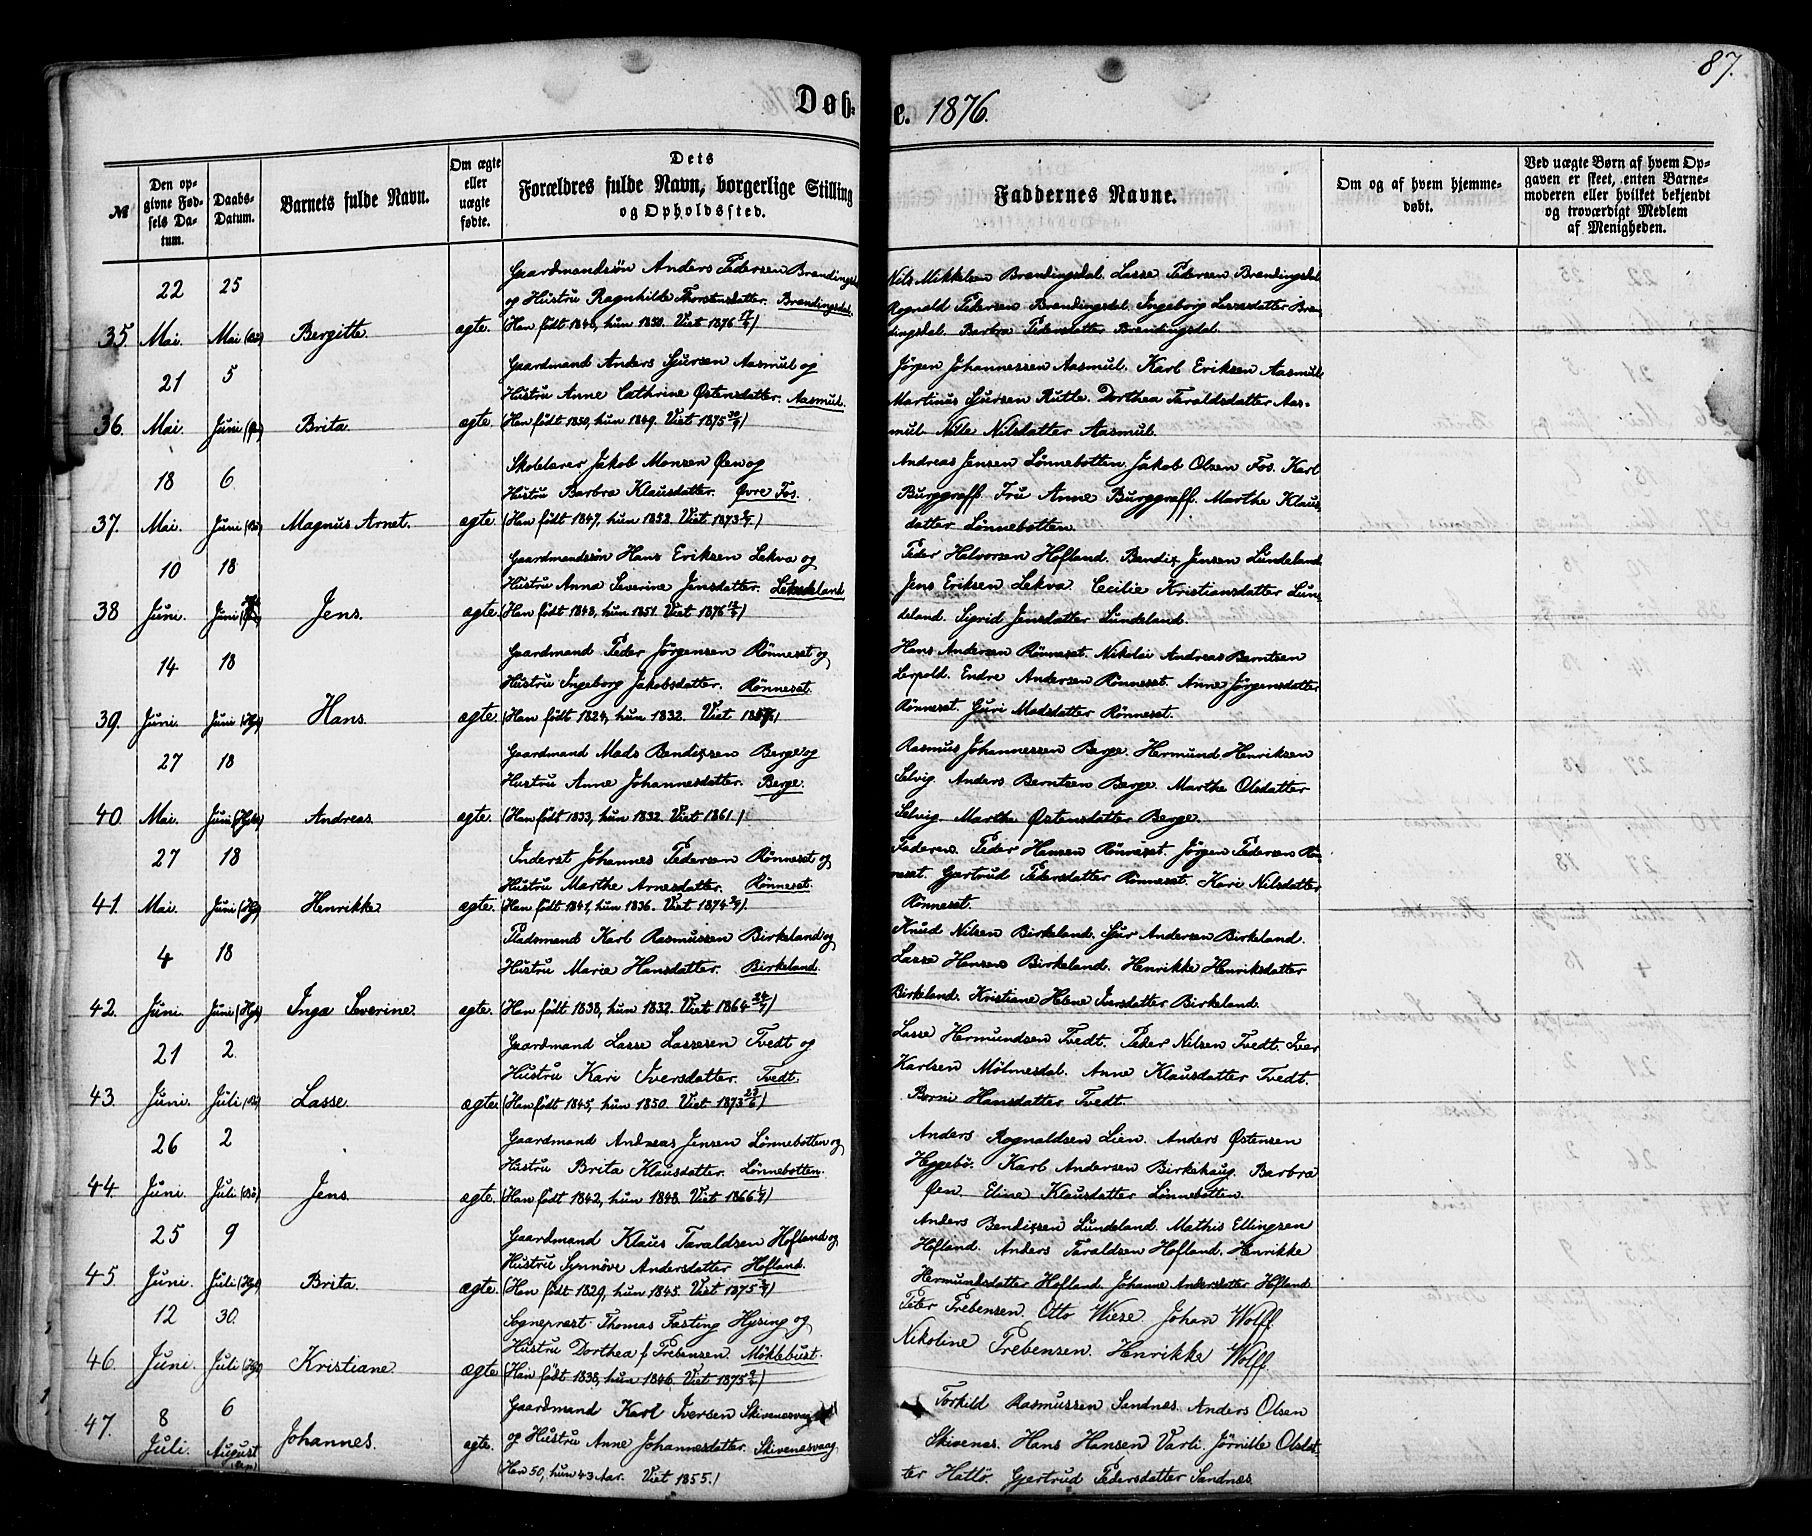 87.
Døb-
e. 1876.
№
Den op-
givne Fød-
sels Da-
tum.
Daabs-
Datum.
Barnets fulde Navn.
Om ægte
eller
uægte
fødte.
Dets
Forældres fulde Navn, borgerlige Stilling
og Opholdssted.
Faddernes Navne.
Om og af hvem hjemme-
døbt.
Ved uægte Børn af hvem Op-
gaven er skeet, enten Barne-
moderen eller hvilket bekjendt
og troværdigt Medlem
af Menigheden.
35. 22 Mai. 25 Mai Bergitte. ægte.
Gaardmandsøn Anders Pedersen Brandingsdal
og Hustru Ragnhilde Thorsensdatter. Brandingsdal.
(Han født 1848, hun 1850. Viet 1876)
Nils Mikkelsen Brandingsdal. Lasse Pedersen Brandingsdal
Rognald Pedersen Brandingsdal. Ingeborg Lassedatter Bran-
dingsdal. Barbra Pedersdatter Brandingsdal.
36. 21 Mai. 5 Juni Brita. ægte.
Gaardmand Anders Sjursen Aasmul og
Hustru Anne Cathrine Østensdatter. Aasmul.
(Han født 1850, hun 1849. Viet 1875)
Jörgen Johannessen Aasmul. Karl Eriksen Aasmul
Martinus Sjursen Rutle. Dorthea Taraldsdatter Aas-
mul. Nille Nilsdatter Aasmul.
37. 18 Mai. 6 Juni Magnus Arnet. ægte.
Skolelærer Jakob Monsen Øen og
Hustru Barbra Klausdatter. Øvre Fos.
(Han født 1847, hun 1852. Viet 1873)
Andreas Jensen Lönnebotten. Jakob Olsen Fos. Karl
Burggraff. Fru Anne Burggraff. Marthe Klaus-
datter Lönnebotten.
38 10 Juni. 18 Juni Jens. ægte.
Gaardmandsøn Hans Eriksen Lekva og
Hustru Anna Severine Jensdatter. Leknesland
(Han født 1848, hun 1851. Viet 1876)
Peder Halvorsen Hofland. Bendix Jensen Lundeland
Jens Eriksen Lekva. Cecilie Kristiansdatter Lun-
deland. Sigrid Jensdatter Lundeland.
39. 14 Juni. 18 Juni Hans. ægte.
Gaardmand Peder Jörgensen Rönneset og
Hustru Ingeborg Jakobsdatter. Rönneset.
(Han født 1824, hun 1832. Viet)
Hans Andersen Rönneset. Nikolai Andreas Berntsen
Leirpold. Endre Andersen Rönneset. Anne Jörgensdatter
Rönneset. Guri Madsdatter Rönneset.
40. 27 Mai. 18 Juni Andreas. ægte.
Gaardmand Mads Bendixsen Berge og
Hustru Anne Johannesdatter. Berge.
(Han født 1833, hun 1832. Viet 1861.)
Rasmus Johannessen Berge. Hermund Henriksen
Selvig. Anders Berntsen Berge. Marthe Olsdatter
Selvig. Marthe Østensdatter Berge.
41. 27 Mai. 18 Juni Henrikke. ægte.
Inderst Johannes Pedersen Rönneset og
Hustru Marthe Arnesdatter. Rönneset.
(Han født 1841, hun 1836. Viet 1874).
Faderen. Peder Hansen Rönneset. Jörgen Pedersen Rön-
neset. Gjertrud Pedersdatter Rönneset. Kari Nilsdatter
Rönneset.
42. 4 Juni. 18 Juni Inga Severine. ægte.
Pladsmand Karl Rasmussen Birkeland og
Hustru Marie Hansdatter. Birkeland.
(Han født 1838, hun 1832. Viet 1864)
Knud Nilsen Birkeland. Sjur Andersen Birkeland.
Lasse Hansen Birkeland. Henrikke Henriksdatter
Birkeland. Kristiane Helene Iversdatter Birkeland.
43. 21 Juni. 2 Juli Lasse. ægte
Gaardmand Lasse Lassesen Tvedt og
Hustru Kari Iversdatter. Tvedt.
(Han født 1845, hun 1850. Viet 1873)
Lasse Hermundsen Tvedt. Peder Nilsen Tvedt. Iver
Karlsen Mölmesdal. Anne Klausdatter Tvedt.
Borni Hansdatter Tvedt.
44. 26 Juni. 2 Juli Jens. ægte.
Gaardmand Andreas Jensen Lönnebotten og
Hustru Brita Klausdatter. Lönnebotten.
(Han født 1842, hun 1848. Viet 1866)
Anders Rognaldsen Lien. Anders Østensen
Heggebö. Karl Andersen Birkehaug. Barbra
Øen. Eline Klausdatter Lönnebotten.
45. 25 Juni. 9 Juli Brita. ægte.
Gaardmand Klaus Taraldsen Hofland og
Hustru Synnöve Andersdatter Hofland.
(Han født 1829, hun 1845. Viet 1875)
Anders Bendixsen Lundeland. Mathis Ellingsen
Hofland. Anders Taraldsen Hofland. Henrikke
Hermundsdatter Hofland. Johanne Andersdatter Hofland
46. 12 Juni. 30. Juli Kristiane. ægte
Sognepræst Thomas Fasting Hysing og
Hustru Dorthea f. Prebensen. Möklebust.
(Han født 1838, hun 1846. Viet 1875)
Peter Prebensen. Otto Wiese. Johan Wolff.
Nikoline Prebensen. Henrikke Wolff.
47. 8 Juli. 6 August Johannes. ægte.
Gaardmand Karl Iversen Skivenesvaag
og Hustru Anne Johannesdatter. Skivenesvaag
(Han 50, hun 43 Aar. Viet 1855.)
Torkild Rasmussen Sandnes. Anders Olsen
Skivenes. Hans Hansen Varti. Jörnille Olsdat-
ter Hattö. Gjertrud Pedersdatter Sandnes.